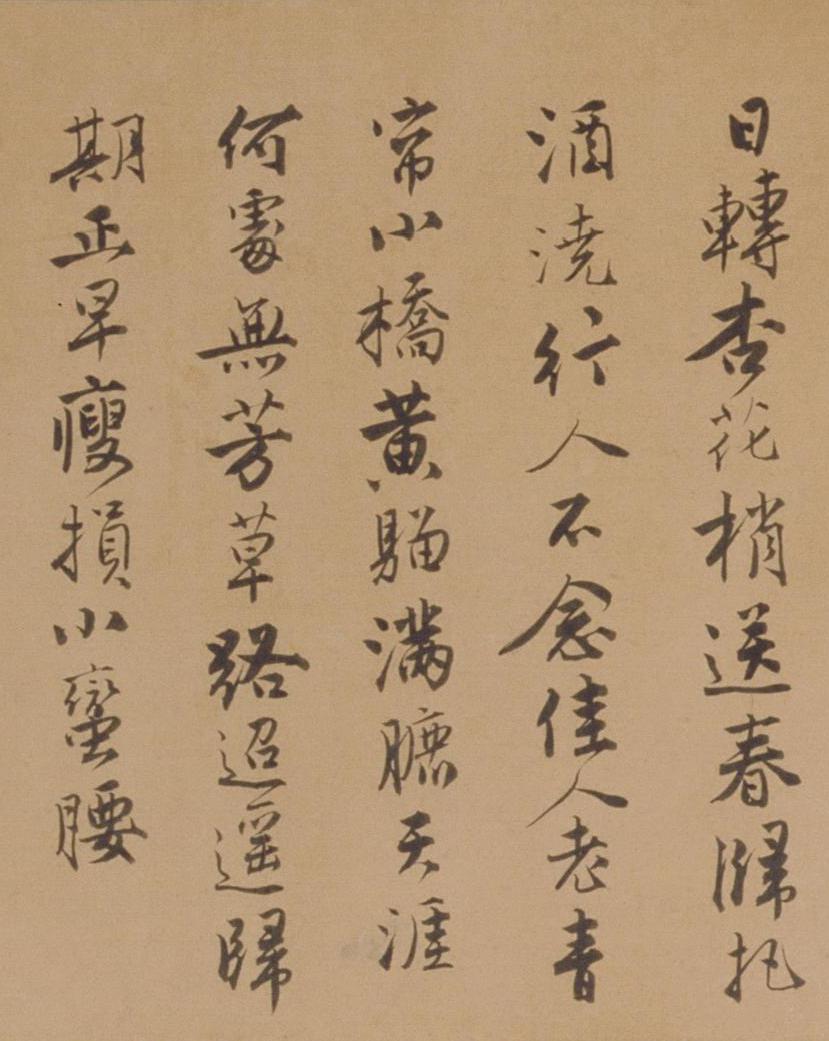 日轉杏花梢送春歸把
酒澆行人不念佳人老青
帘小橋黃騮滿臕天涯
何處無芳草路迢遥歸
期正早瘦損小蠻腰